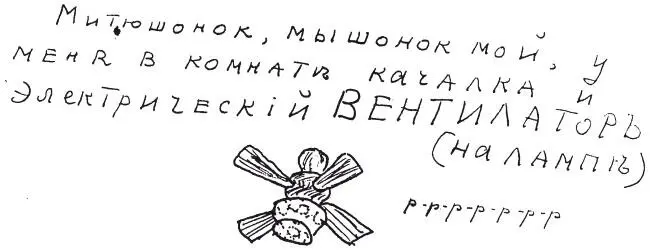 Митюшонок, мышонок мой, у
меня в комнатѣ качалка и
электрическій ВЕНТИЛАТОРЪ
(на лампѣ)
р-р-р-р-р-р-р